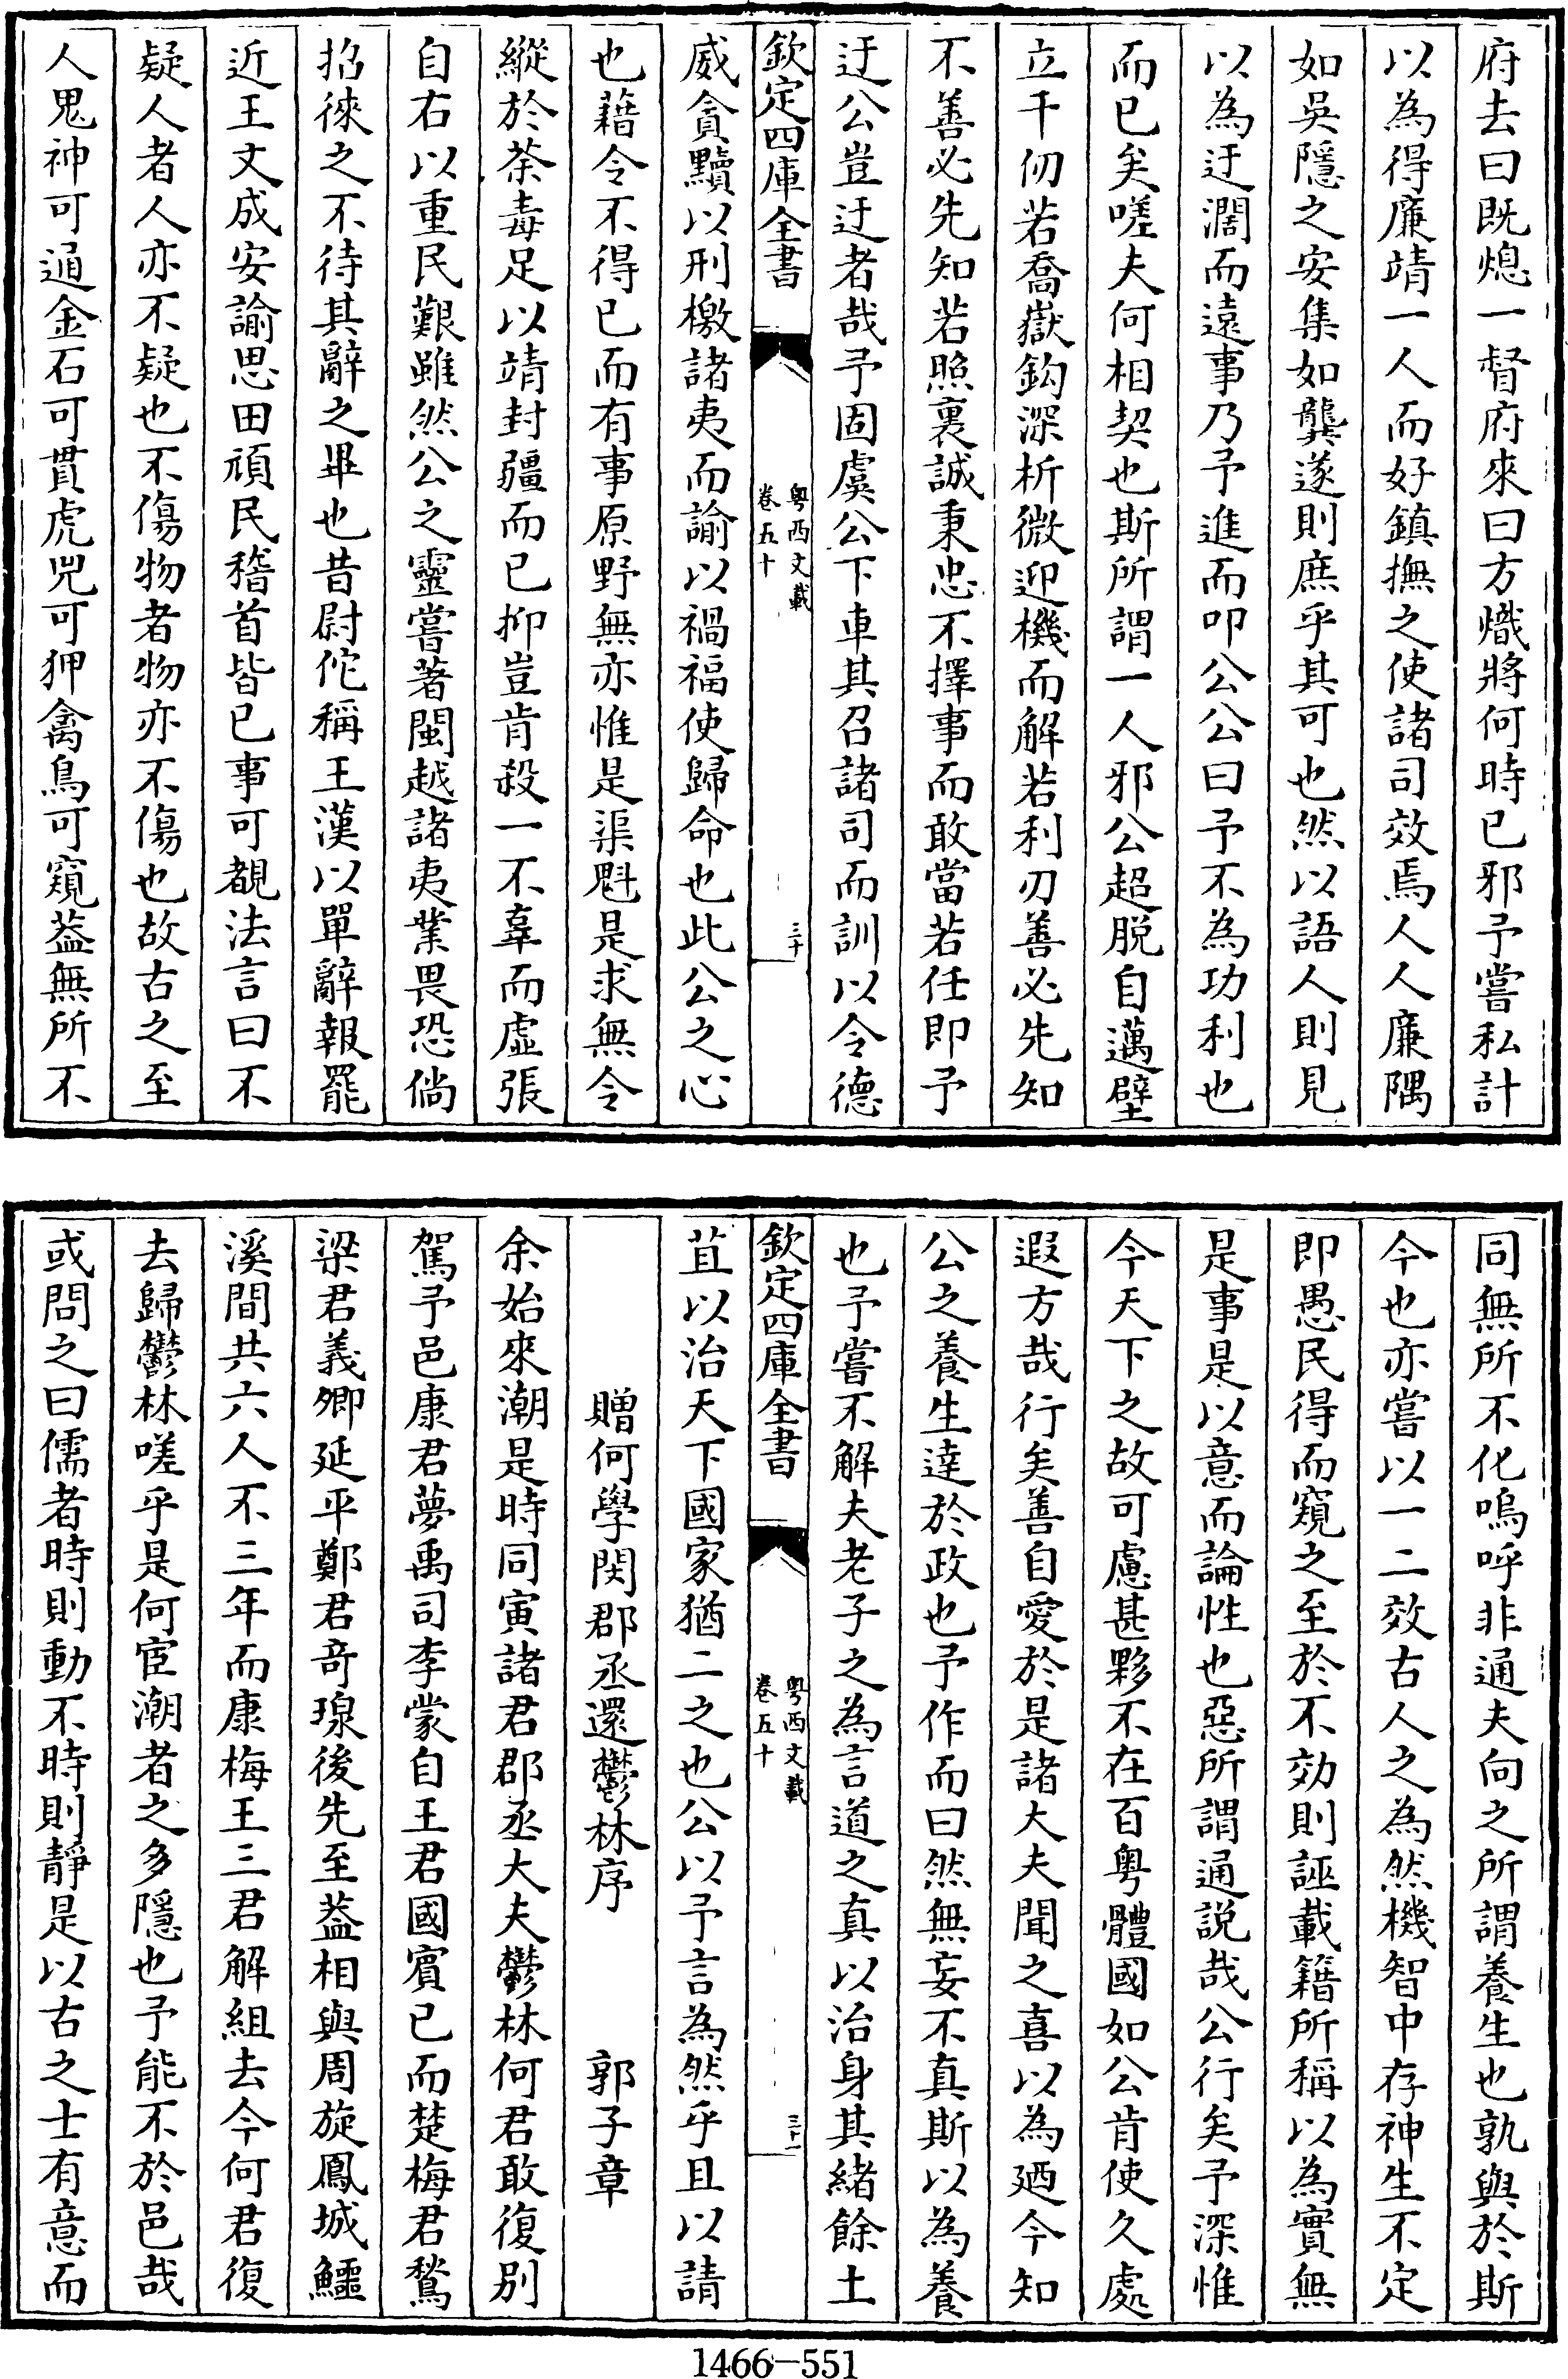 府去曰既熄一督府來曰方熾將何時已邪予嘗私計
以為得廉靖一人而好鎮撫之使諸司效焉人人廉隅
如吳隱之安集如龔遂則庶乎其可也然以語人則見
以為迂濶而遠事乃予進而叩公公曰予不為功利也
而已矣嗟夫何相契也斯所謂一人邪公超脱自邁壁
立千仞若喬嶽鈎深析微迎機而解若利刃善必先知
不善必先知若照裏誠秉忠不擇事而敢當若任即予
迂公豈迂者哉予固虞公下車其召諸司而訓以令德
欽定四庫全書
粤西文載
卷五十
三十
威貪黷以刑檄諸夷而諭以禍福使歸命也此公之心
也藉令不得已而有事原野無亦惟是渠魁是求無令
縱於荼毒足以靖封疆而已抑豈肯殺一不辜而虛張
自右以重民艱雖然公之靈嘗著閩越諸夷業畏恐倘
招徠之不待其辭之畢也昔尉佗稱王漢以單辭報罷
近王文成安諭思田頑民稽首皆已事可覩法言曰不
疑人者人亦不疑也不傷物者物亦不傷也故古之至
人鬼神可通金石可貫虎兕可狎禽鳥可窺葢無所不
同無所不化嗚呼非通夫向之所謂養生也孰與於斯
今也亦嘗以一二效古人之為然機智中存神生不定
即愚民得而窺之至於不効則誣載籍所稱以為實無
是事是以意而論性也惡所謂通説哉公行矣予深惟
今天下之故可慮甚夥不在百粤體國如公肯使久處
遐方哉行矣善自愛於是諸大夫聞之喜以為廼今知
公之養生達於政也予作而曰然無妄不真斯以為養
也予嘗不解夫老子之為言道之真以治身其緒餘土
欽定四庫全書
粤西文載
卷五十
三十一
苴以治天下國家猶二之也公以予言為然乎且以請
贈何學閔郡丞還鬱林序 郭子章
余始來潮是時同寅諸君郡丞大夫鬱林何君敢復別
駕予邑康君夢禹司李蒙自王君國賓已而楚梅君鶖
梁君義卿延平鄭君竒瑔後先至葢相與周旋鳳城鱷
溪間共六人不三年而康梅王三君解組去今何君復
去歸鬱林嗟乎是何宦潮者之多隱也予能不於邑哉
或問之曰儒者時則動不時則靜是以古之士有意而
1466-551